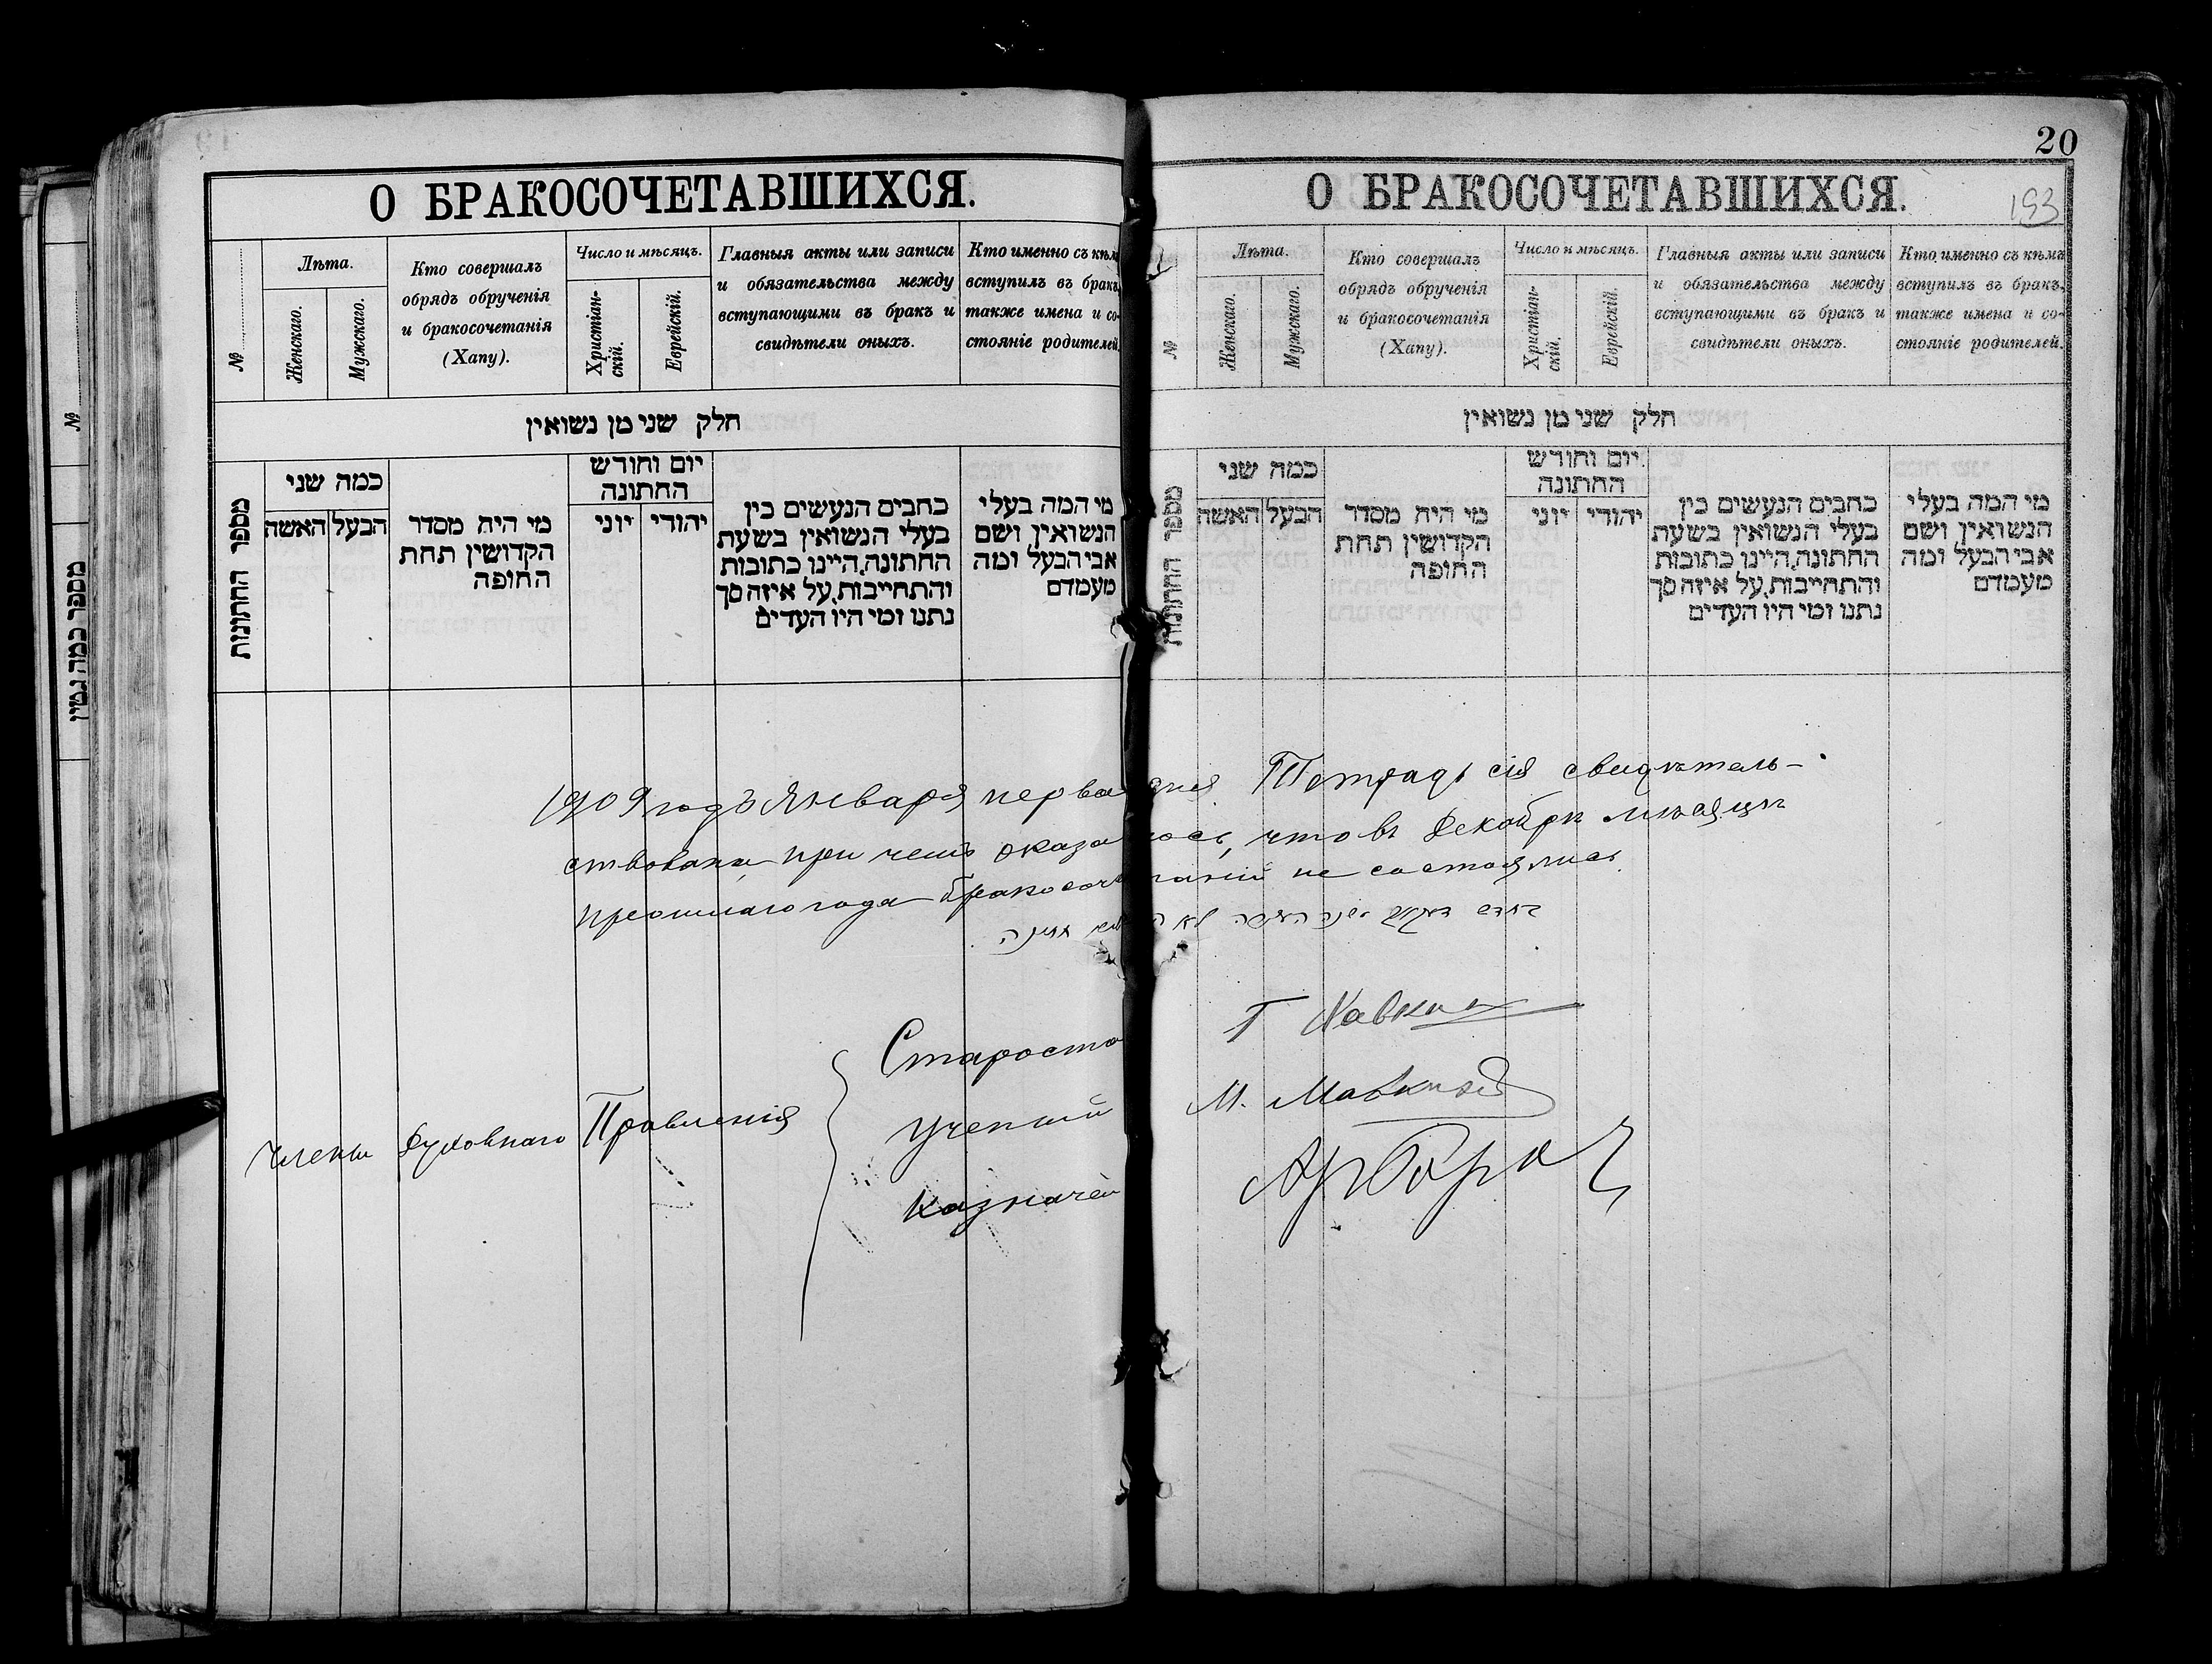 20
193
О БРАКОСОЧЕТАВШИХСЯ.
№
Лѣта.
Женскаго.
Мужскаго.
Кто совершалъ
обрядъ обрученія
и бракосочетанія
(Хапу).
Число и мѣсяцъ.
Христіан-
скій.
Еврейскій.
Главныя акты или записи
и обязательства между
вступающими въ бракъ и
свидѣтели оныхъ.
Кто именно съ кѣмъ
вступилъ въ бракъ,
также имена и со-
стояніе родителей.
חלק שני מן נשואין
מספר החתונות
כמה שני
הבעל
האשה
מי היה מסדר
הקדושין תחת
החופה
יום וחודש
החתונה
יוני
יהודי
כתבים הנעשים בין
בעלי הנשואין בשעת
החתונה, היינו כתובות
והתחייבות, על איזה סך
נתנו ומי היו העדים
מי המה בעלי
הנשואין ושם
אבי הבעל ומה
מעמדם
О БРАКОСОЧЕТАВШИХСЯ.
№
Лѣта.
Женскаго.
Мужскаго.
Кто совершалъ
обрядъ обрученія
и бракосочетанія
(Хапу).
Число и мѣсяцъ.
Христіан-
скій.
Еврейскій.
Главныя акты или записи
и обязательства между
вступающими въ бракъ и
свидѣтели оныхъ.
Кто именно съ кѣмъ
вступилъ въ бракъ,
также имена и со-
стояніе родителей.
חלק שני מן נשואין
מספר החתונות
כמה שני
הבעל
האשה
מי היה מסדר
הקדושין תחת
החופה
יום וחודש
החתונה
יוני
יהודי
כתבים הנעשים בין
בעלי הנשואין בשעת
החתונה, היינו כתובות
והתחייבות, על איזה סך
נתנו ומי היו העדים
מי המה בעלי
הנשואין ושם
אבי הבעל ומה
מעמדם
1909 годъ Января перваго дня Тетрадь сія свидѣтель-
ствована, при чемъ оказалось, что въ Декабрѣ мѣсяцѣ
прошлаго года бракосочетаній не состоялись.
Члены Духовнаго Правленія
Староста
Ученый
Казначей
№
מספר כמה גטין